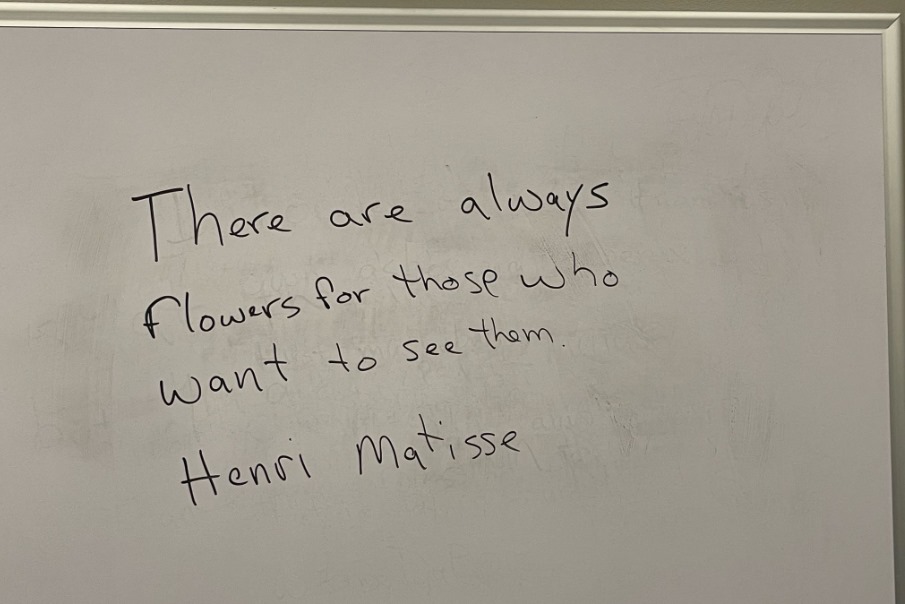 There are always
flowers for those who
want to see them.
Henri Matisse